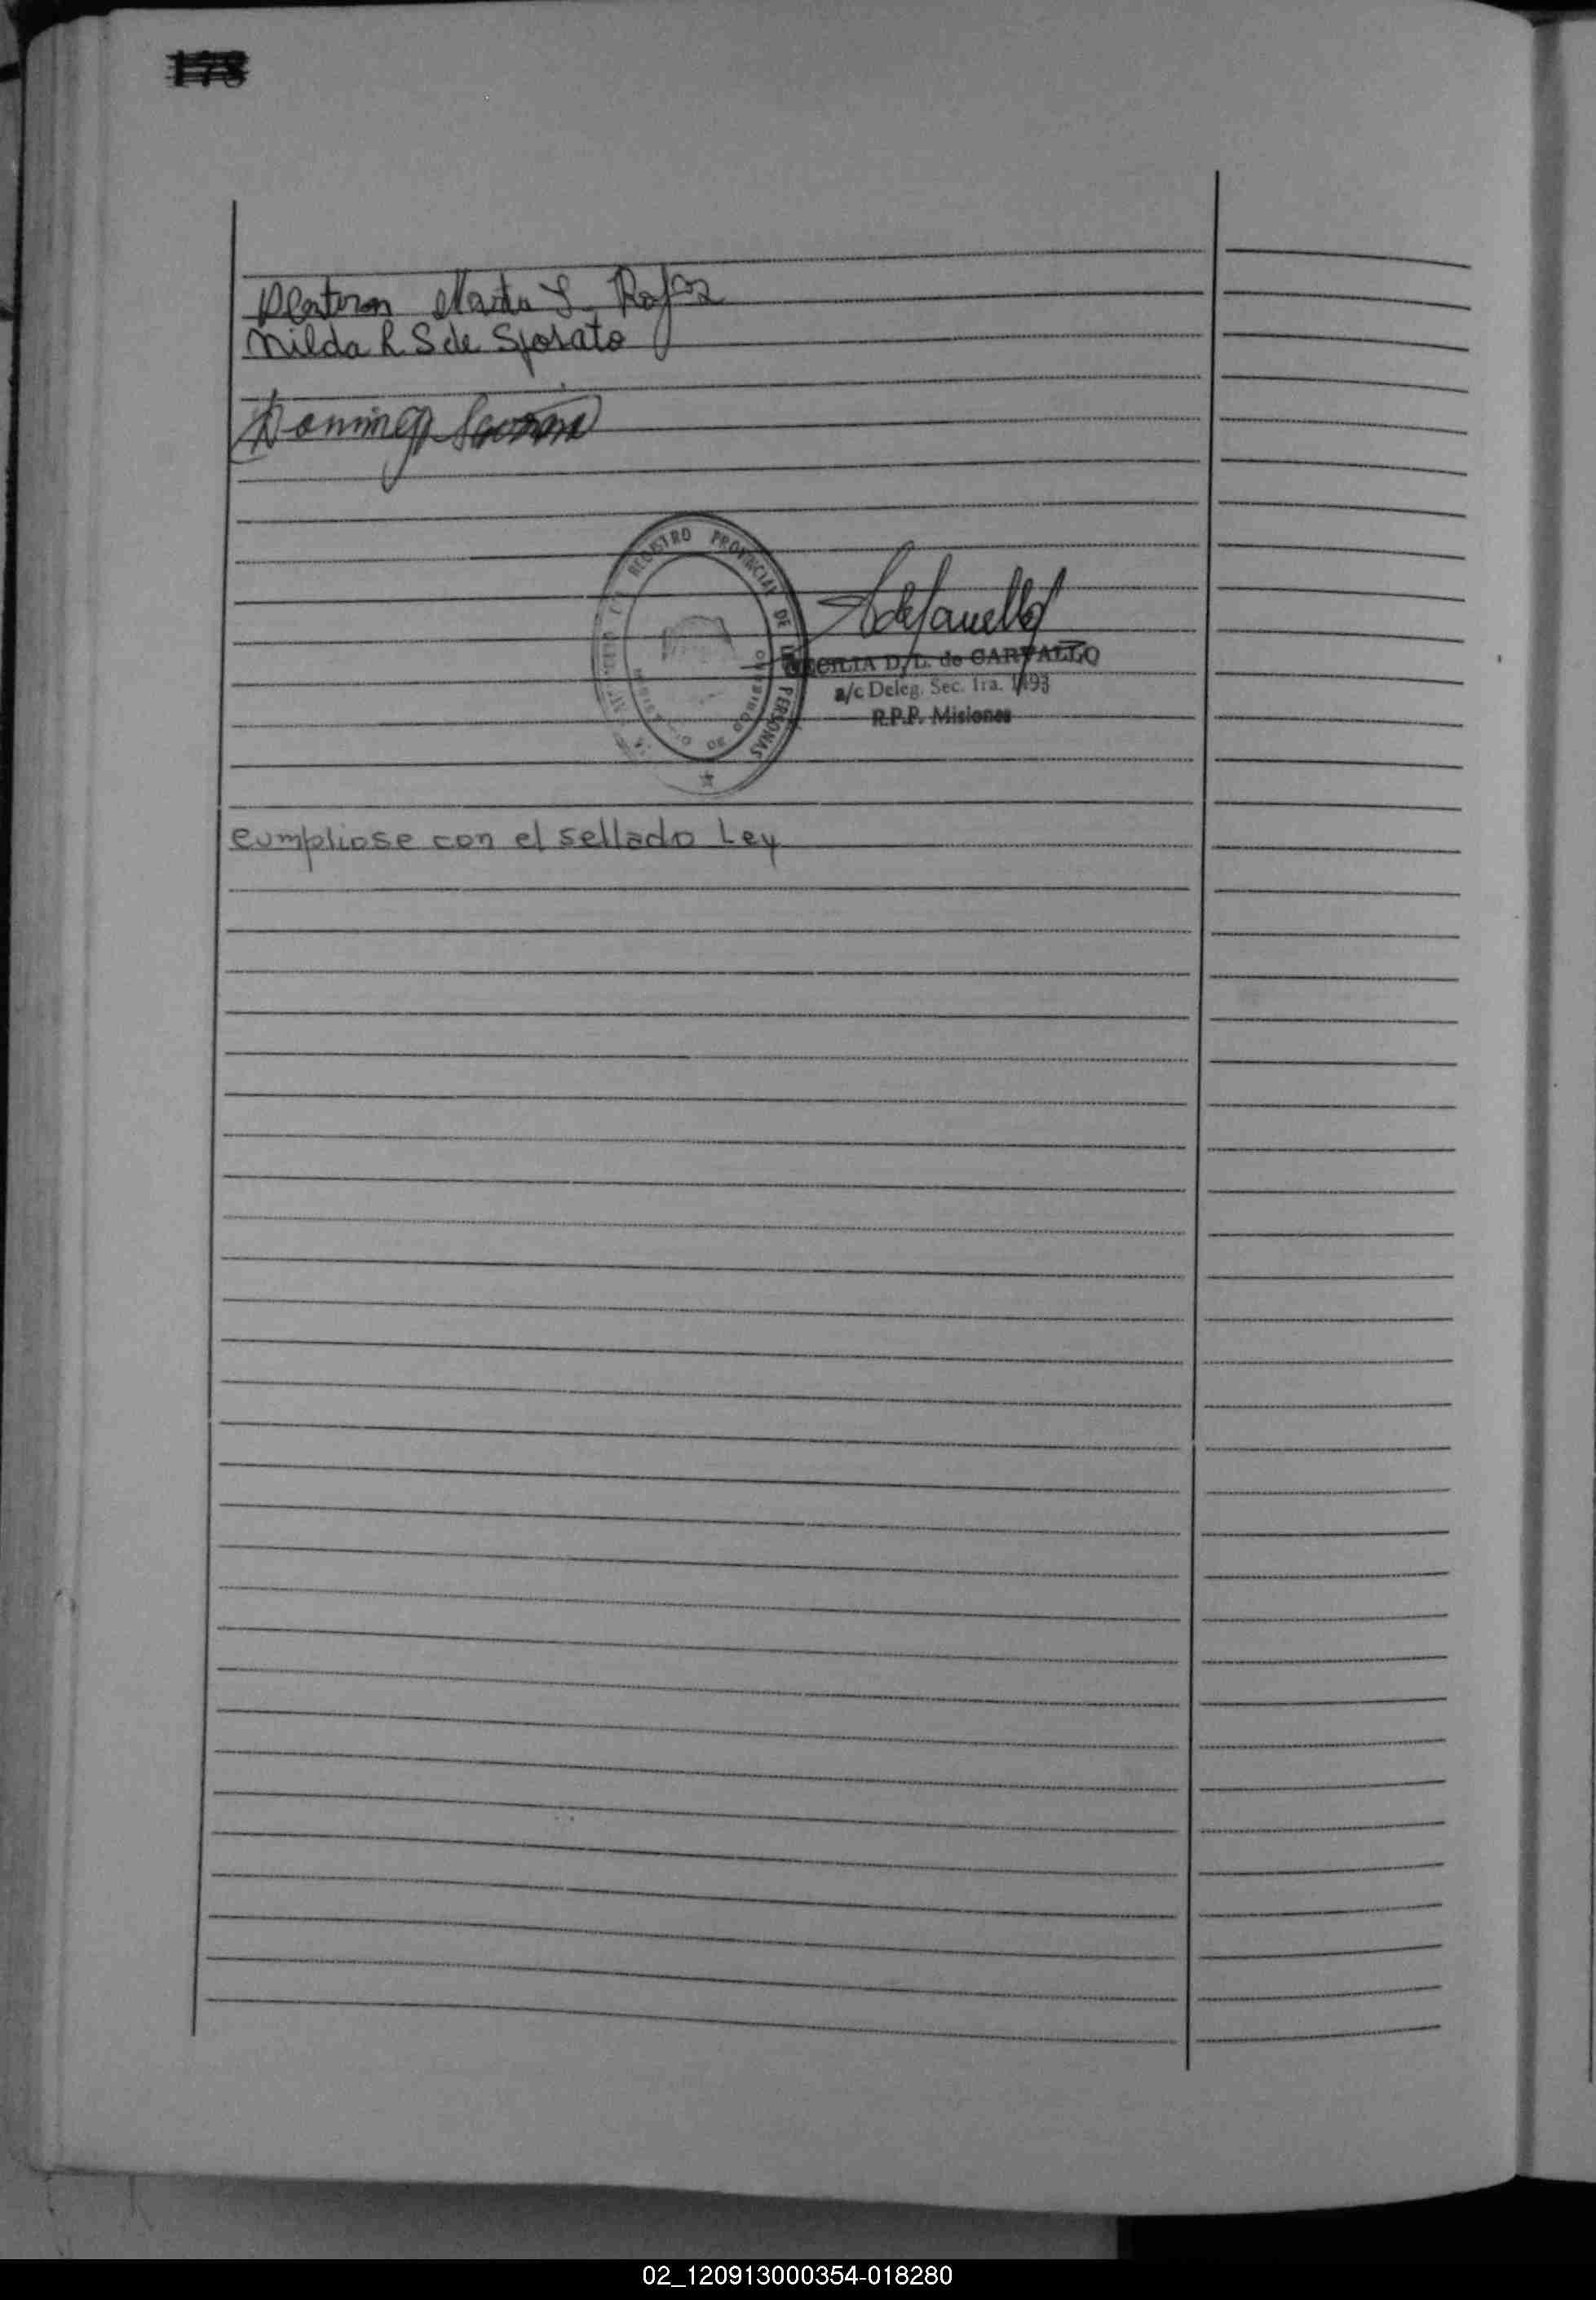 178
Marta S. Rojas
Nilda R. S de Sposato
Domingo
REGISTRO PROVINCIAL DE LAS PERSONAS
CECILIA D. L. de CARVALLO
a/c Deleg. Sec. 1ra. 1493
R.P.P. Misiones
cumpliose con el sellado Ley
02_120913000354-018280